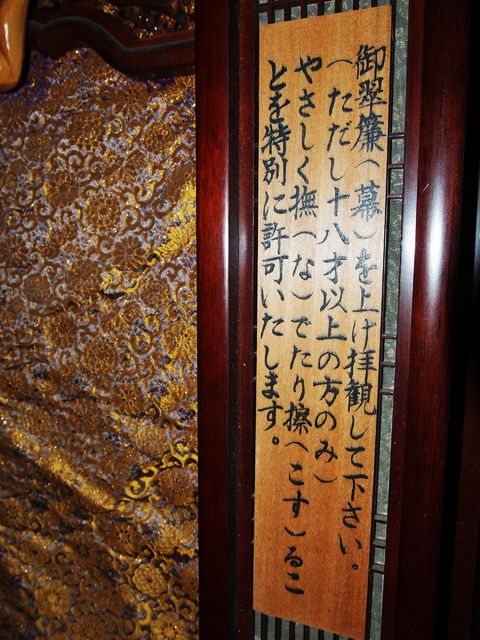 御翠簾(幕)を上げ拝観して下さい。
(ただし十八才以上の方のみ)
やさしく撫(な)でたり擦(こす)るこ
とを特別に許可いたします。